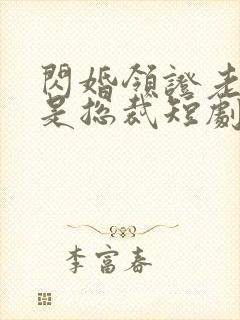 閃婚領證老
是總裁短劇
李富春